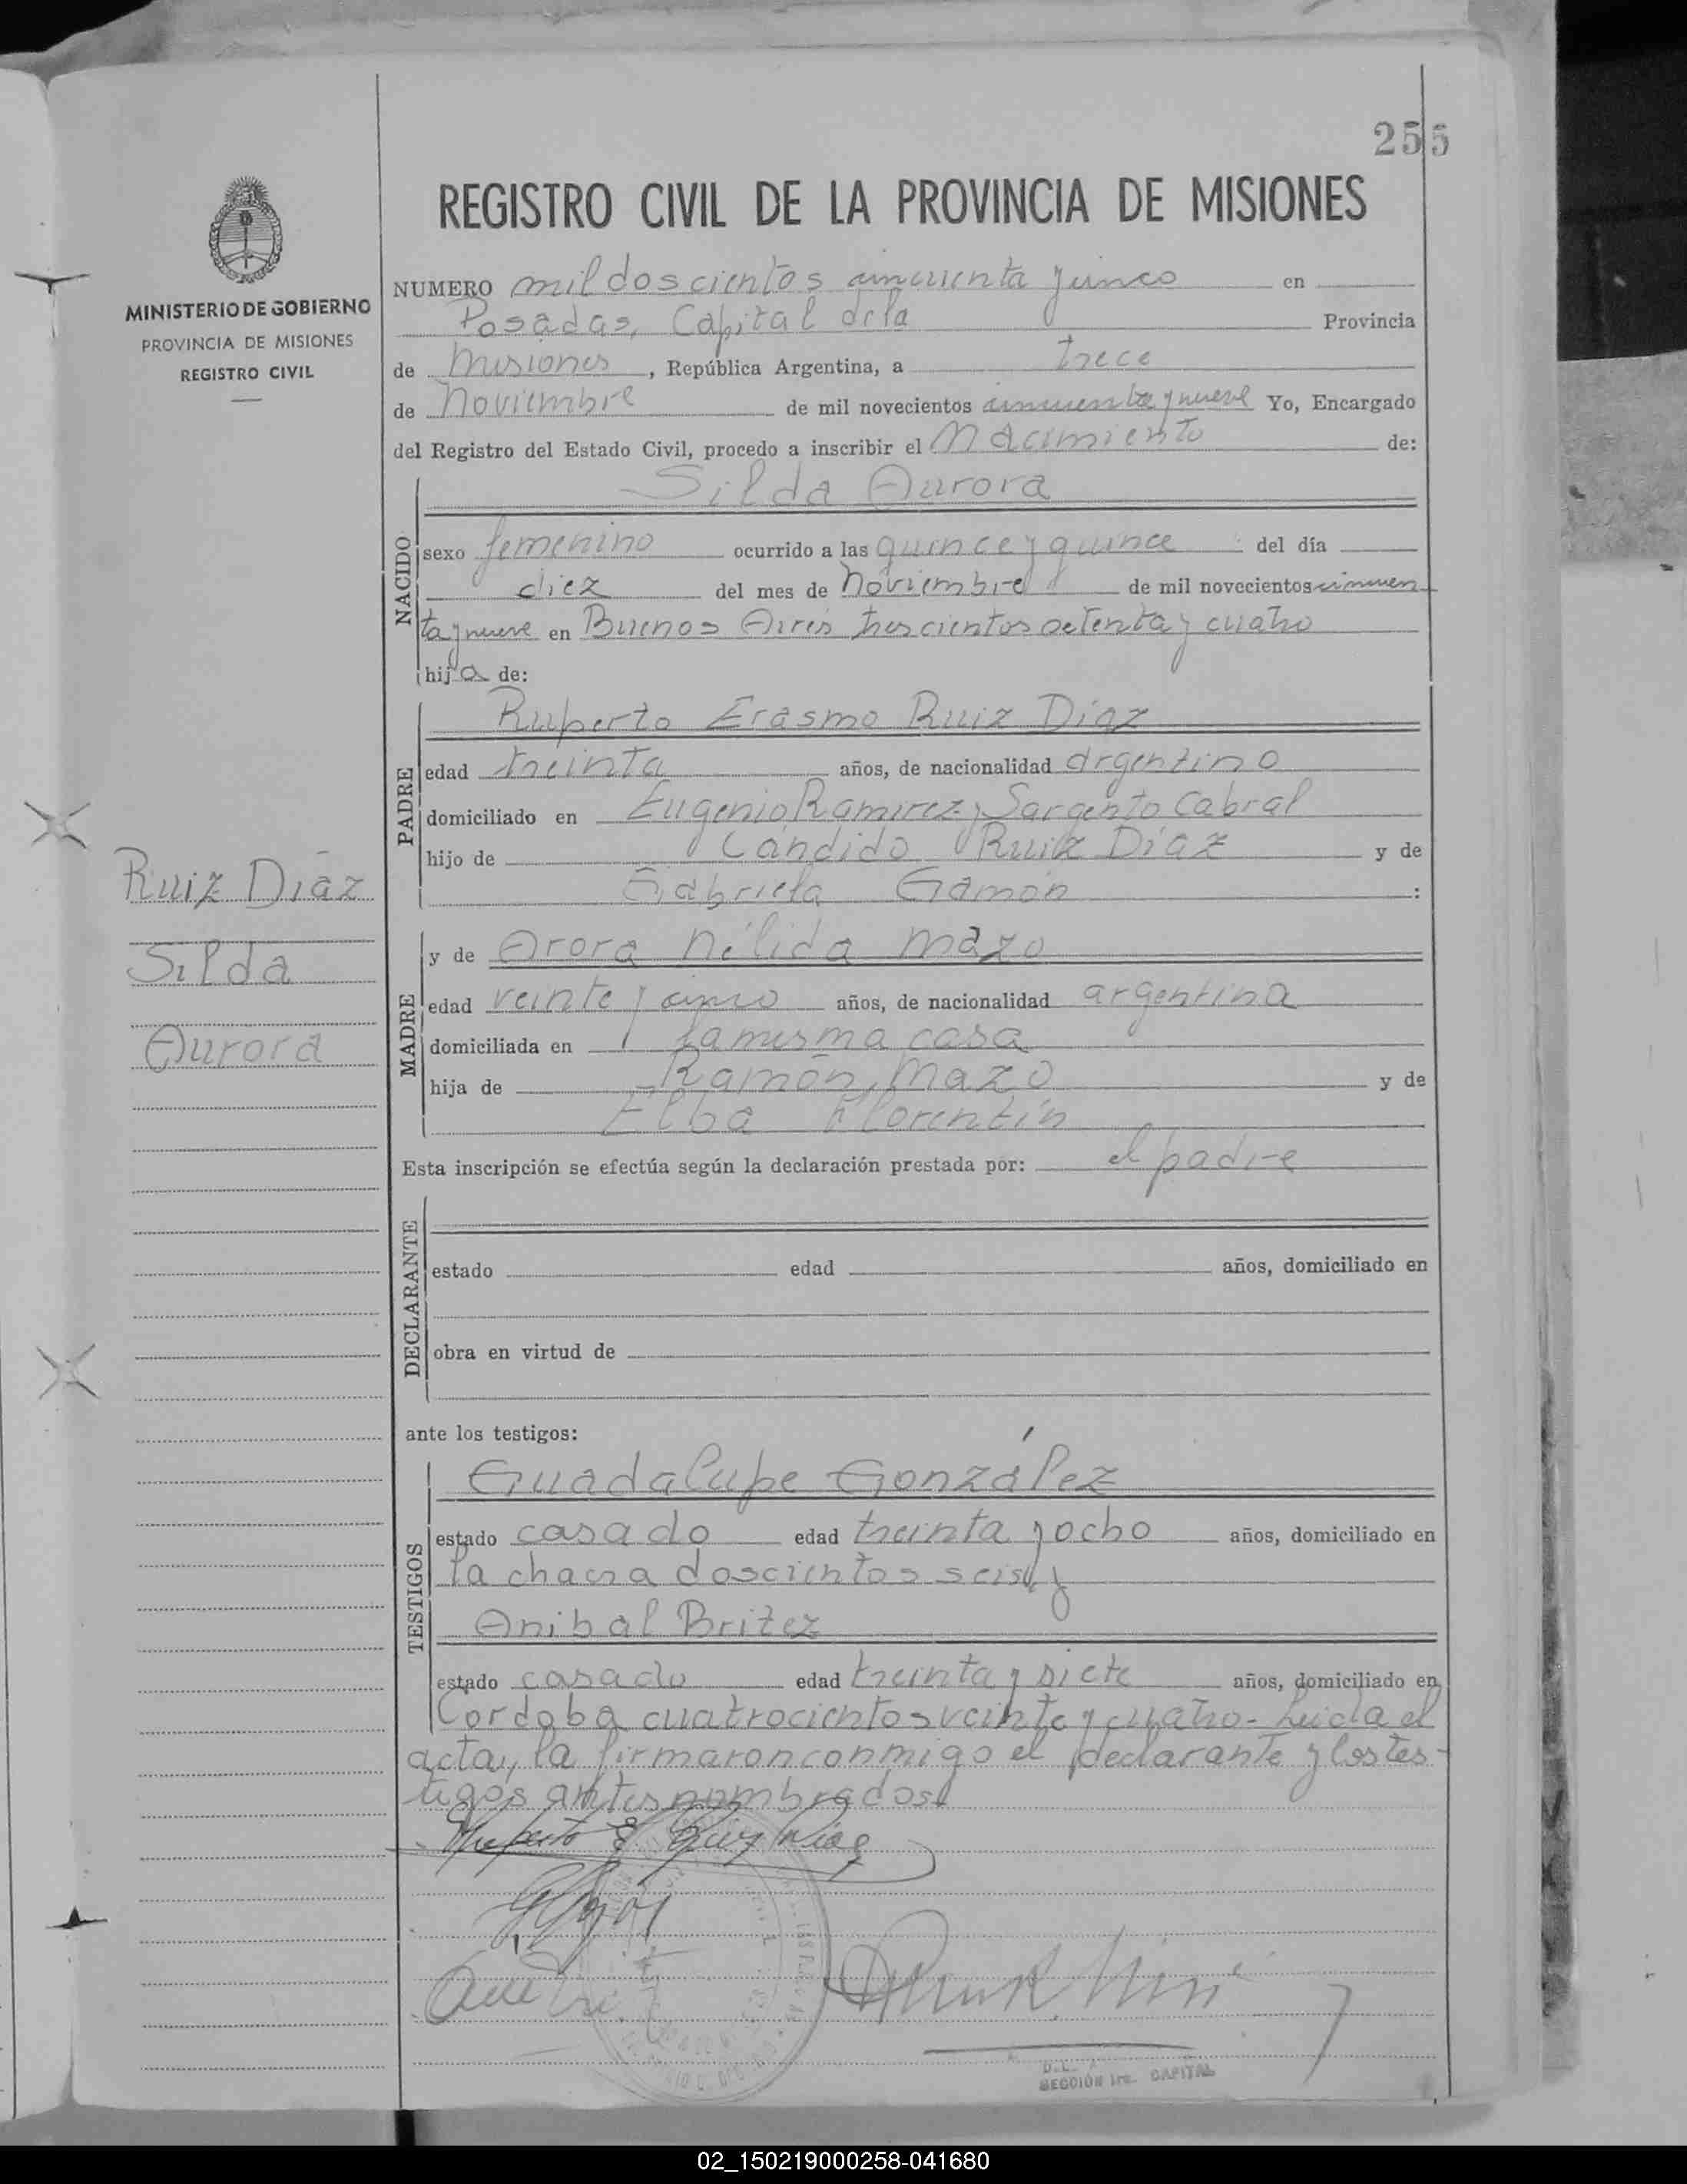 255
REGISTRO CIVIL DE LA PROVINCIA DE MISIONES
MINISTERIO DE GOBIERNO
PROVINCIA DE MISIONES
REGISTRO CIVIL
NUMERO mil doscientos cincuenta y cinco en
Posadas, Capital de la Provincia
de Misiones, República Argentina, a trece
de Noviembre de mil novecientos cincuenta y nueve Yo, Encargado
del Registro del Estado Civil, procedo a inscribir el Nacimiento de:
Silda Aurora
NACIDO
sexo femenino ocurrido a las quince y quince del día
diez del mes de Noviembre de mil novecientos cincuen
ta y nueve en Buenos Aires trescientos setenta y cuatro
hija de:
PADRE
Ruperto Erasmo Ruiz Díaz
edad treinta años, de nacionalidad argentino
domiciliado en Eugenio Ramirez y Sargento Cabral
hijo de Cándido Ruiz Díaz y de
Gabriela Gamón :
Ruiz Díaz
Silda
Aurora
MADRE
y de Arora Nélida Mazo
edad veinte y cinco años, de nacionalidad argentina
domiciliada en la misma casa
hija de Ramón Mazo y de
Elba Florentín
Esta inscripción se efectúa según la declaración prestada por: el padre
DECLARANTE
estado edad años, domiciliado en
obra en virtud de
ante los testigos:
TESTIGOS
Guadalupe González
estado casado edad treinta y ocho años, domiciliado en
la chacra doscientos seis y
Anibal Britez
estado casado edad treinta y siete años, domiciliado en
Cordoba cuatrocientos veinte y cuatro - Leida el
acta, la firmaron conmigo el declarante y los tes-
tigos antes nombrados
Ruperto E Ruiz Diaz
SECCIÓN 1ra. CAPITAL
02_150219000258-041680